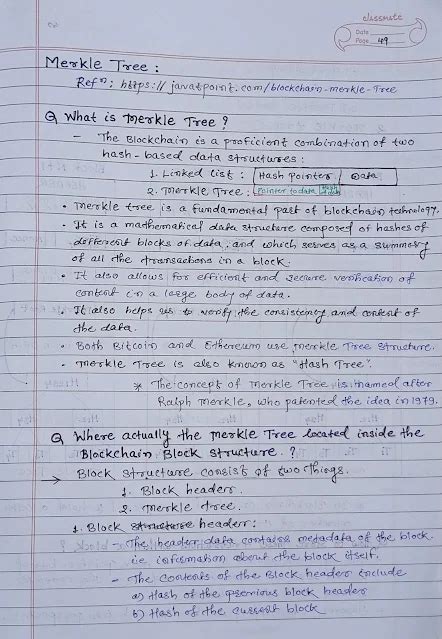 classmate
Date
Page 49
Merkle Tree :
Refⁿ: https:// javatpoint.com/blockchain-merkle-Tree
Q What is Merkle Tree ?
- The Blockchain is a proficient combination of two
hash-based data structures :
1. Linked list : Hash Pointer Data
2. Merkle Tree : Pointer to data Hash of data
• Merkle tree is a fundamental part of blockchain technology.
• It is a mathematical data structure composed of hashes of
different blocks of data, and which serves as a summary
of all the transactions in a block.
• It also allows for efficient and secure verification of
content in a large body of data.
• It also helps us to verify the consistency and content of
the data.
• Both Bitcoin and Ethereum use Merkle Tree structure.
• Merkle Tree is also known as "Hash Tree".
* The concept of Merkle Tree is named after
Ralph Merkle, who patented the idea in 1979.
Q Where actually the Merkle Tree located inside the
Blockchain Block structure ?
→ Block structure consist of two things.
1. Block header.
2. Merkle tree.
1. Block structure header :
- The header data contains metadata of the block.
ie information about the block itself.
- The contents of the Block header include
a) Hash of the previous block header
b) Hash of the current block